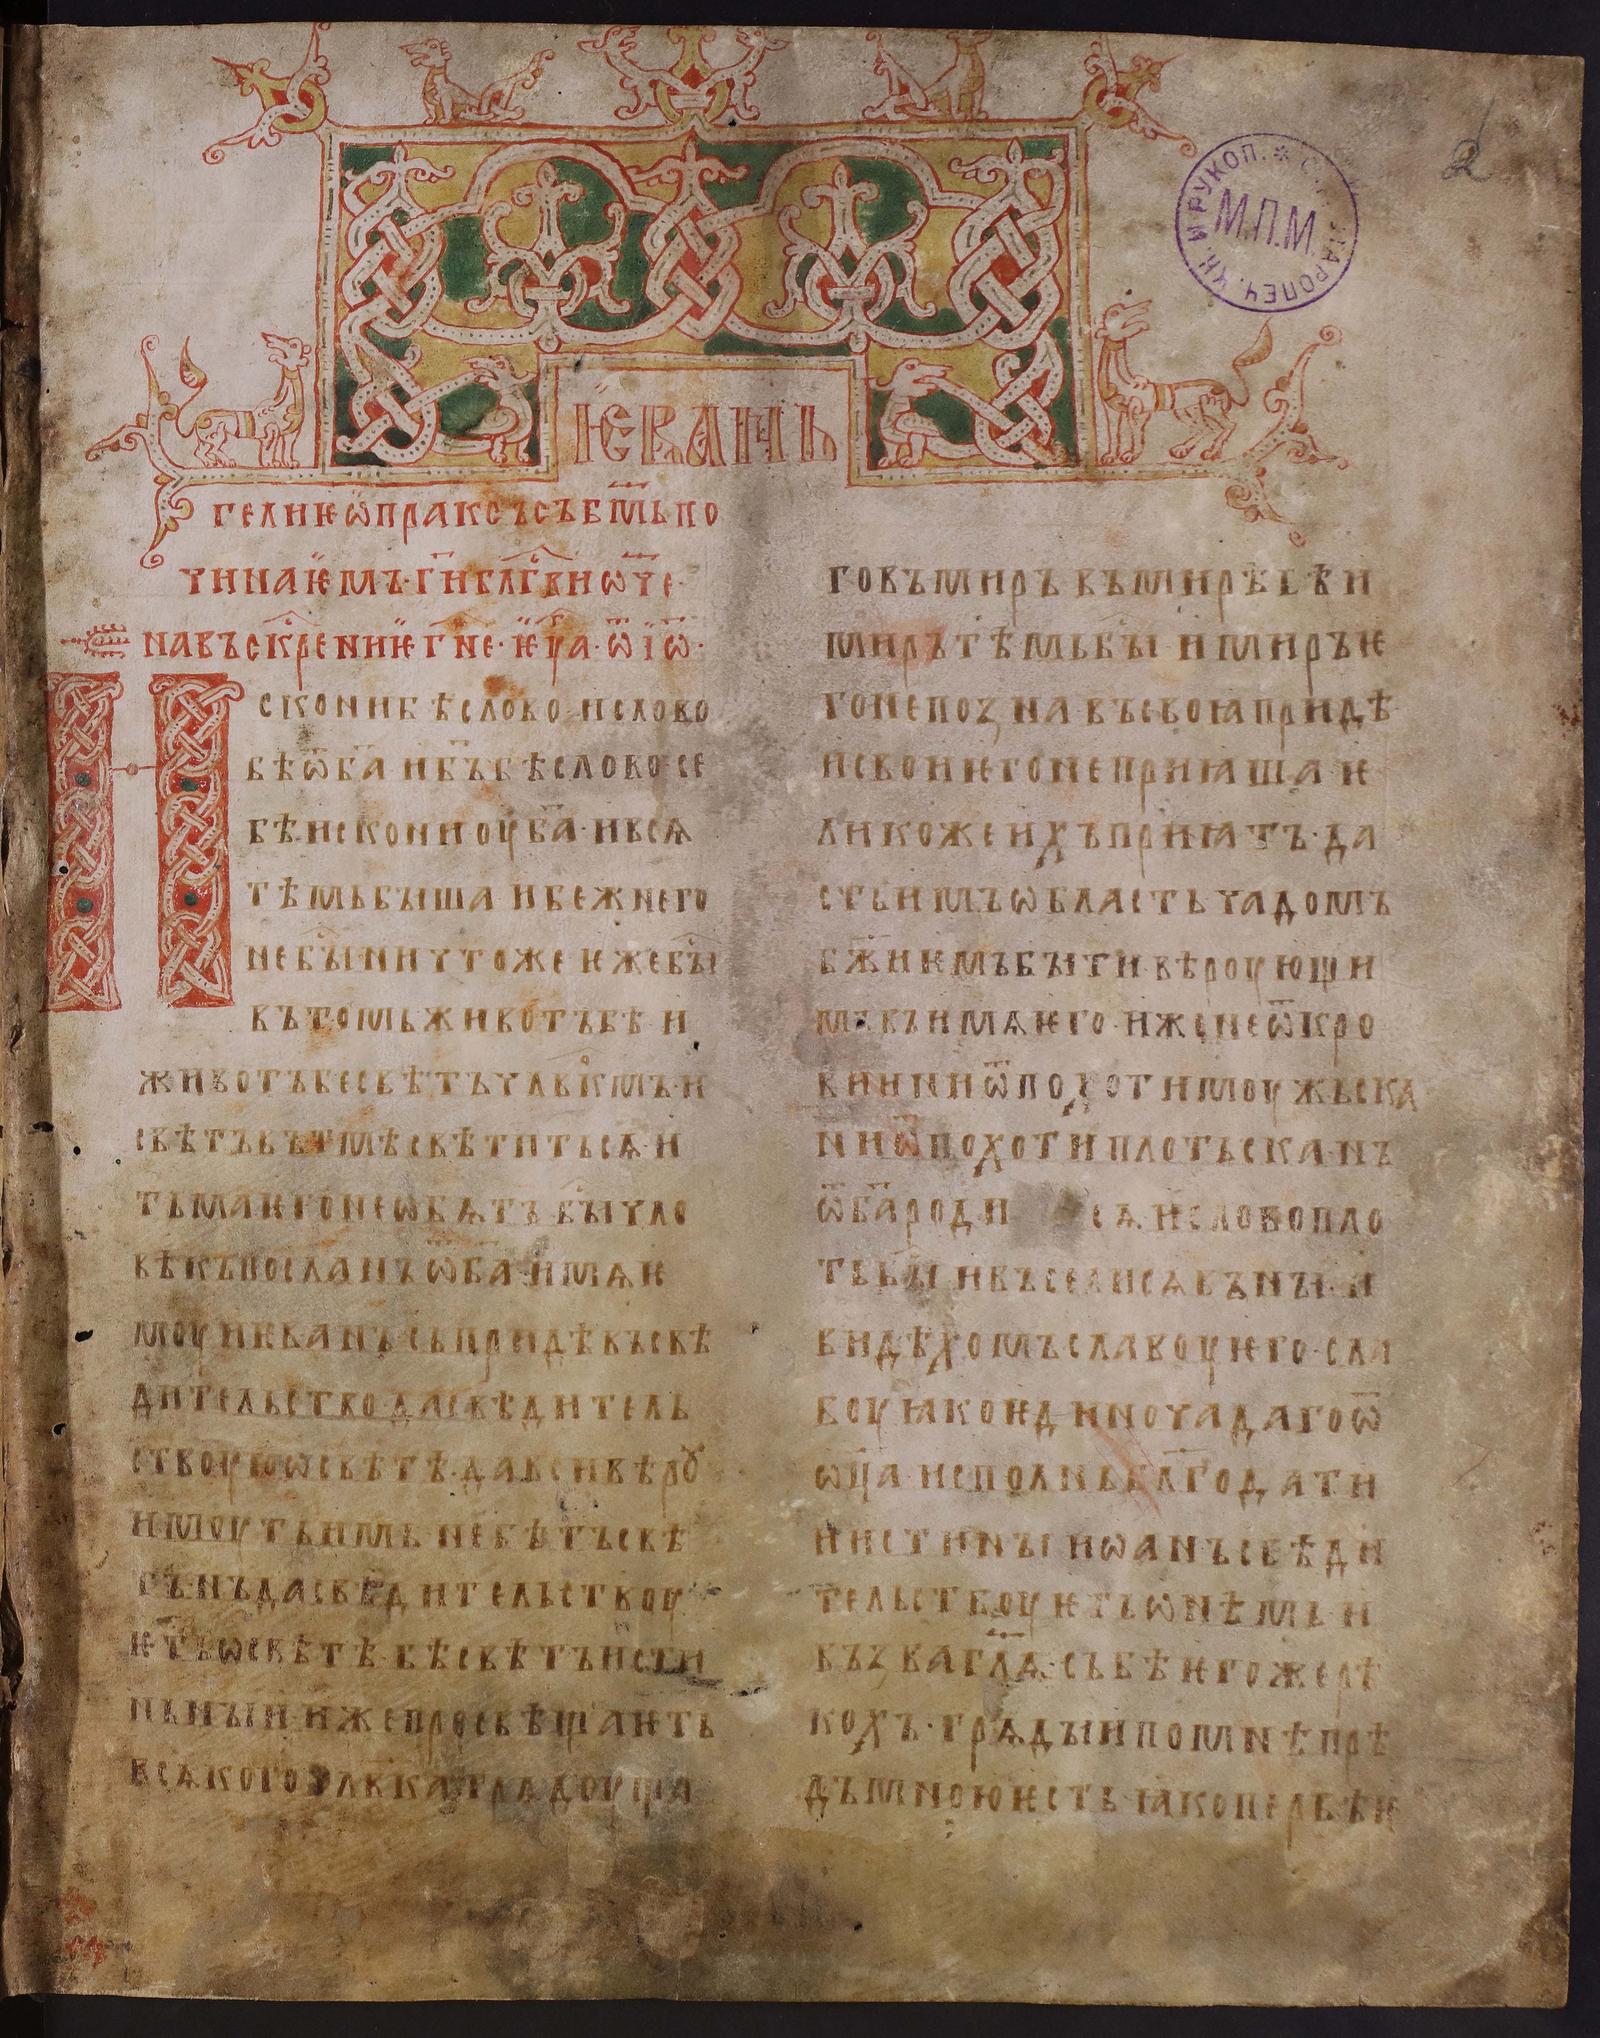 ѤВАНЬ
ГЕЛИѤ ѾПРАКСЪ СЪ Б҃МЬ ПО
ЧИНАѤМЪ· Г҃И БЛГ҃ВИ Ѿ҃ЧЕ·
НА ВЪСКР҃ЕНИѤ Г҃НЕ· Ѥ҃УА· Ѿ ІѠ·
СКОНИ БѢ СЛОВО· И СЛОВО
БѢ Ѿ Б҃А· И Б҃Ъ БѢ СЛОВО· СЕ
БѢ ИСКОНИ ОУ Б҃А· И ВСѦ
ТѢМЬ БЫША И БЕЖ НЕГО
НЕ БЫ НИЧТОЖЕ ѤЖЕ БЫ
ВЪ ТОМЬ ЖИВОТЪ БѢ· И
ЖИВОТЪ БЕ СВѢТЪ ЧЛВ҃КМЪ· И
СВѢТЪ ВЪ ТМѢ СВѢТИТЬСѦ· И
ТЬМА ѤГО НЕ ѠБѦТЪ· БЫ ЧЛО
ВѢКЪ ПОСЛАНЪ Ѿ Б҃А· ИМѦ Ѥ
МОУ ИВАНЪ СЬ ПРИДѢ ВЪ СВѢ
ДИТЕЛЬСТВО· ДА СВѢДИТЕЛЬ
СТВОУЮ Ѡ СВѢТѢ· ДА ВСИ ВѢРꙊ
ИМОУТЬ ИМЬ· НЕ БѢ ТЪ СВѢ
ТЪ НЪ ДА СВѢДИТЕЛЬСТВОУ
ѤТЬ Ѡ СВѢТѢ· БѢ СВѢТЪ ИСТИ
НЬНЫИ· ИЖЕ ПРОСВѢЩАѤТЬ
ВСѦКОГО ЧЛВКА ГРѦДОУЩА
ГО ВЪ МИРЪ ВЪ МИРѢ БѢ И
МИРЪ ТѢМЬ БЫ· И МИРЪ Ѥ
ГО НЕ ПОЗНА ВЪ СВОꙖ ПРИДѢ·
И СВОИ ѤГО НЕ ПРИꙖША Ѥ
ЛИКО ЖЕ ИХЪ ПРИꙖТЪ· ДА
СТЬ ИМЪ ѠБЛАСТЬ ЧАДОМЪ
Б҃ЖИѤМЪ БЫТИ ВѢРОУЮЩИ
МЪ ВЪ ИМѦ ѤГО· ИЖЕ НЕ Ѿ КРО
ВИ НИ НИ Ѿ ПОХОТИ МОУЖЬСКА
НИ Ѿ ПОХОТИ ПЛОТЬСКА· НЪ
Ѿ Б҃А РОДИ СѦ И СЛОВО ПЛО
ТЬ БЫ И ВЪСЕЛИСѦ ВЪ НЫ· И
ВИДѢХОМЪ СЛАВОУ ѤГО· СЛА
ВОУ ꙖКО ИДИНОЧАДАГО Ѿ
Ѡ҃ЦА· ИСПОЛНЬ БЛГ҃ОДАТИ
И ИСТИНЫ ИѠАНЪ СВѢДИ
ТЕЛЬСТВОУѤТЬ Ѡ НѢМЬ· И
ВЪЗВА ГЛ҃Ѧ· СЬ БѢ ѤГОЖЕ РѢ
КОХЪ· ГРѦДЫИ ПО МНѢ ПРѢ
ДЪ МНОЮ ѤСТЬ ꙖКО ПЕРВѢѤ
М.П.М.